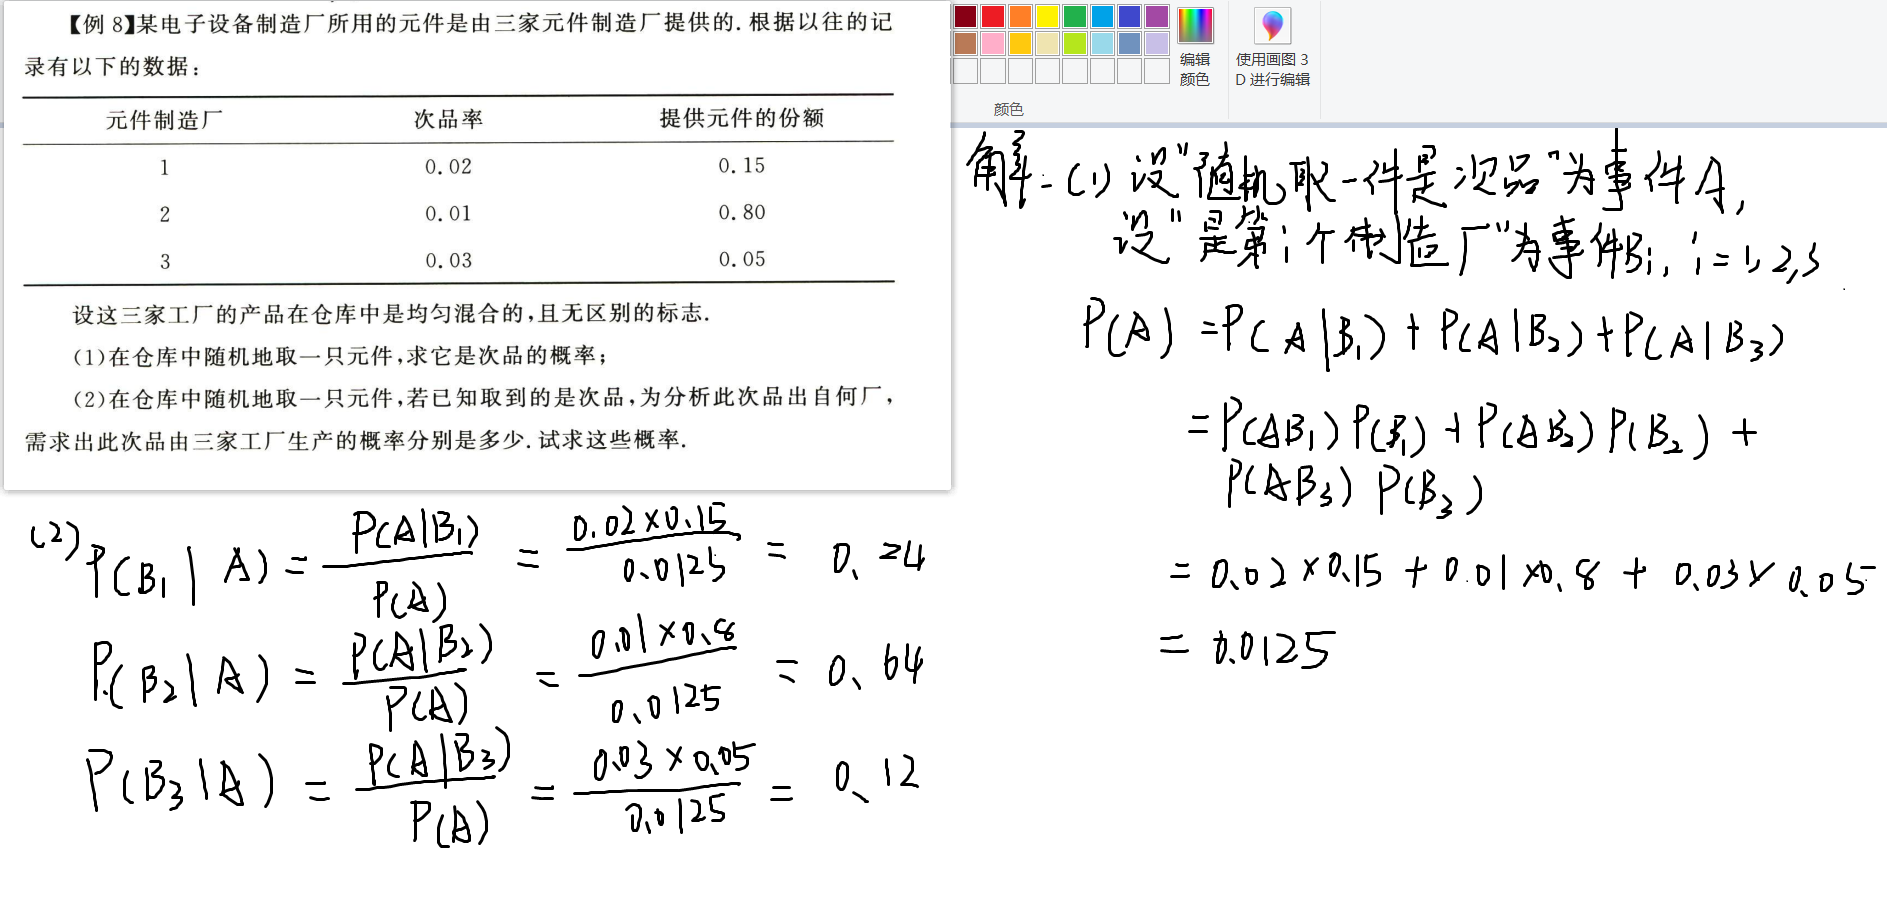 【例 8】某电子设备制造厂所用的元件是由三家元件制造厂提供的.根据以往的记
录有以下的数据：
元件制造厂 次品率 提供元件的份额
1 0.02 0.15
2 0.01 0.80
3 0.03 0.05
设这三家工厂的产品在仓库中是均匀混合的,且无区别的标志.
(1)在仓库中随机地取一只元件,求它是次品的概率;
(2)在仓库中随机地取一只元件,若已知取到的是次品,为分析此次品出自何厂,
需求出此次品由三家工厂生产的概率分别是多少.试求这些概率.
编辑
颜色
使用画图 3
D 进行编辑
颜色
解：(1) 设"随机取一件是次品"为事件A,
设"是第i个制造厂"为事件Bi, i=1,2,3
P(A) =P(A|B₁)+P(A|B₂)+P(A|B₃)
=P(AB₁)P(B₁)+P(AB₂)P(B₂)+
P(AB₃)P(B₃)
=0.02×0.15+0.01×0.8+0.03×0.05
=0.0125
(2) P(B₁|A)=P(A|B₁)/P(A)=0.02×0.15/0.0125=0.24
P(B₂|A)=P(A|B₂)/P(A)=0.01×0.8/0.0125=0.64
P(B₃|A)=P(A|B₃)/P(A)=0.03×0.05/0.0125=0.12